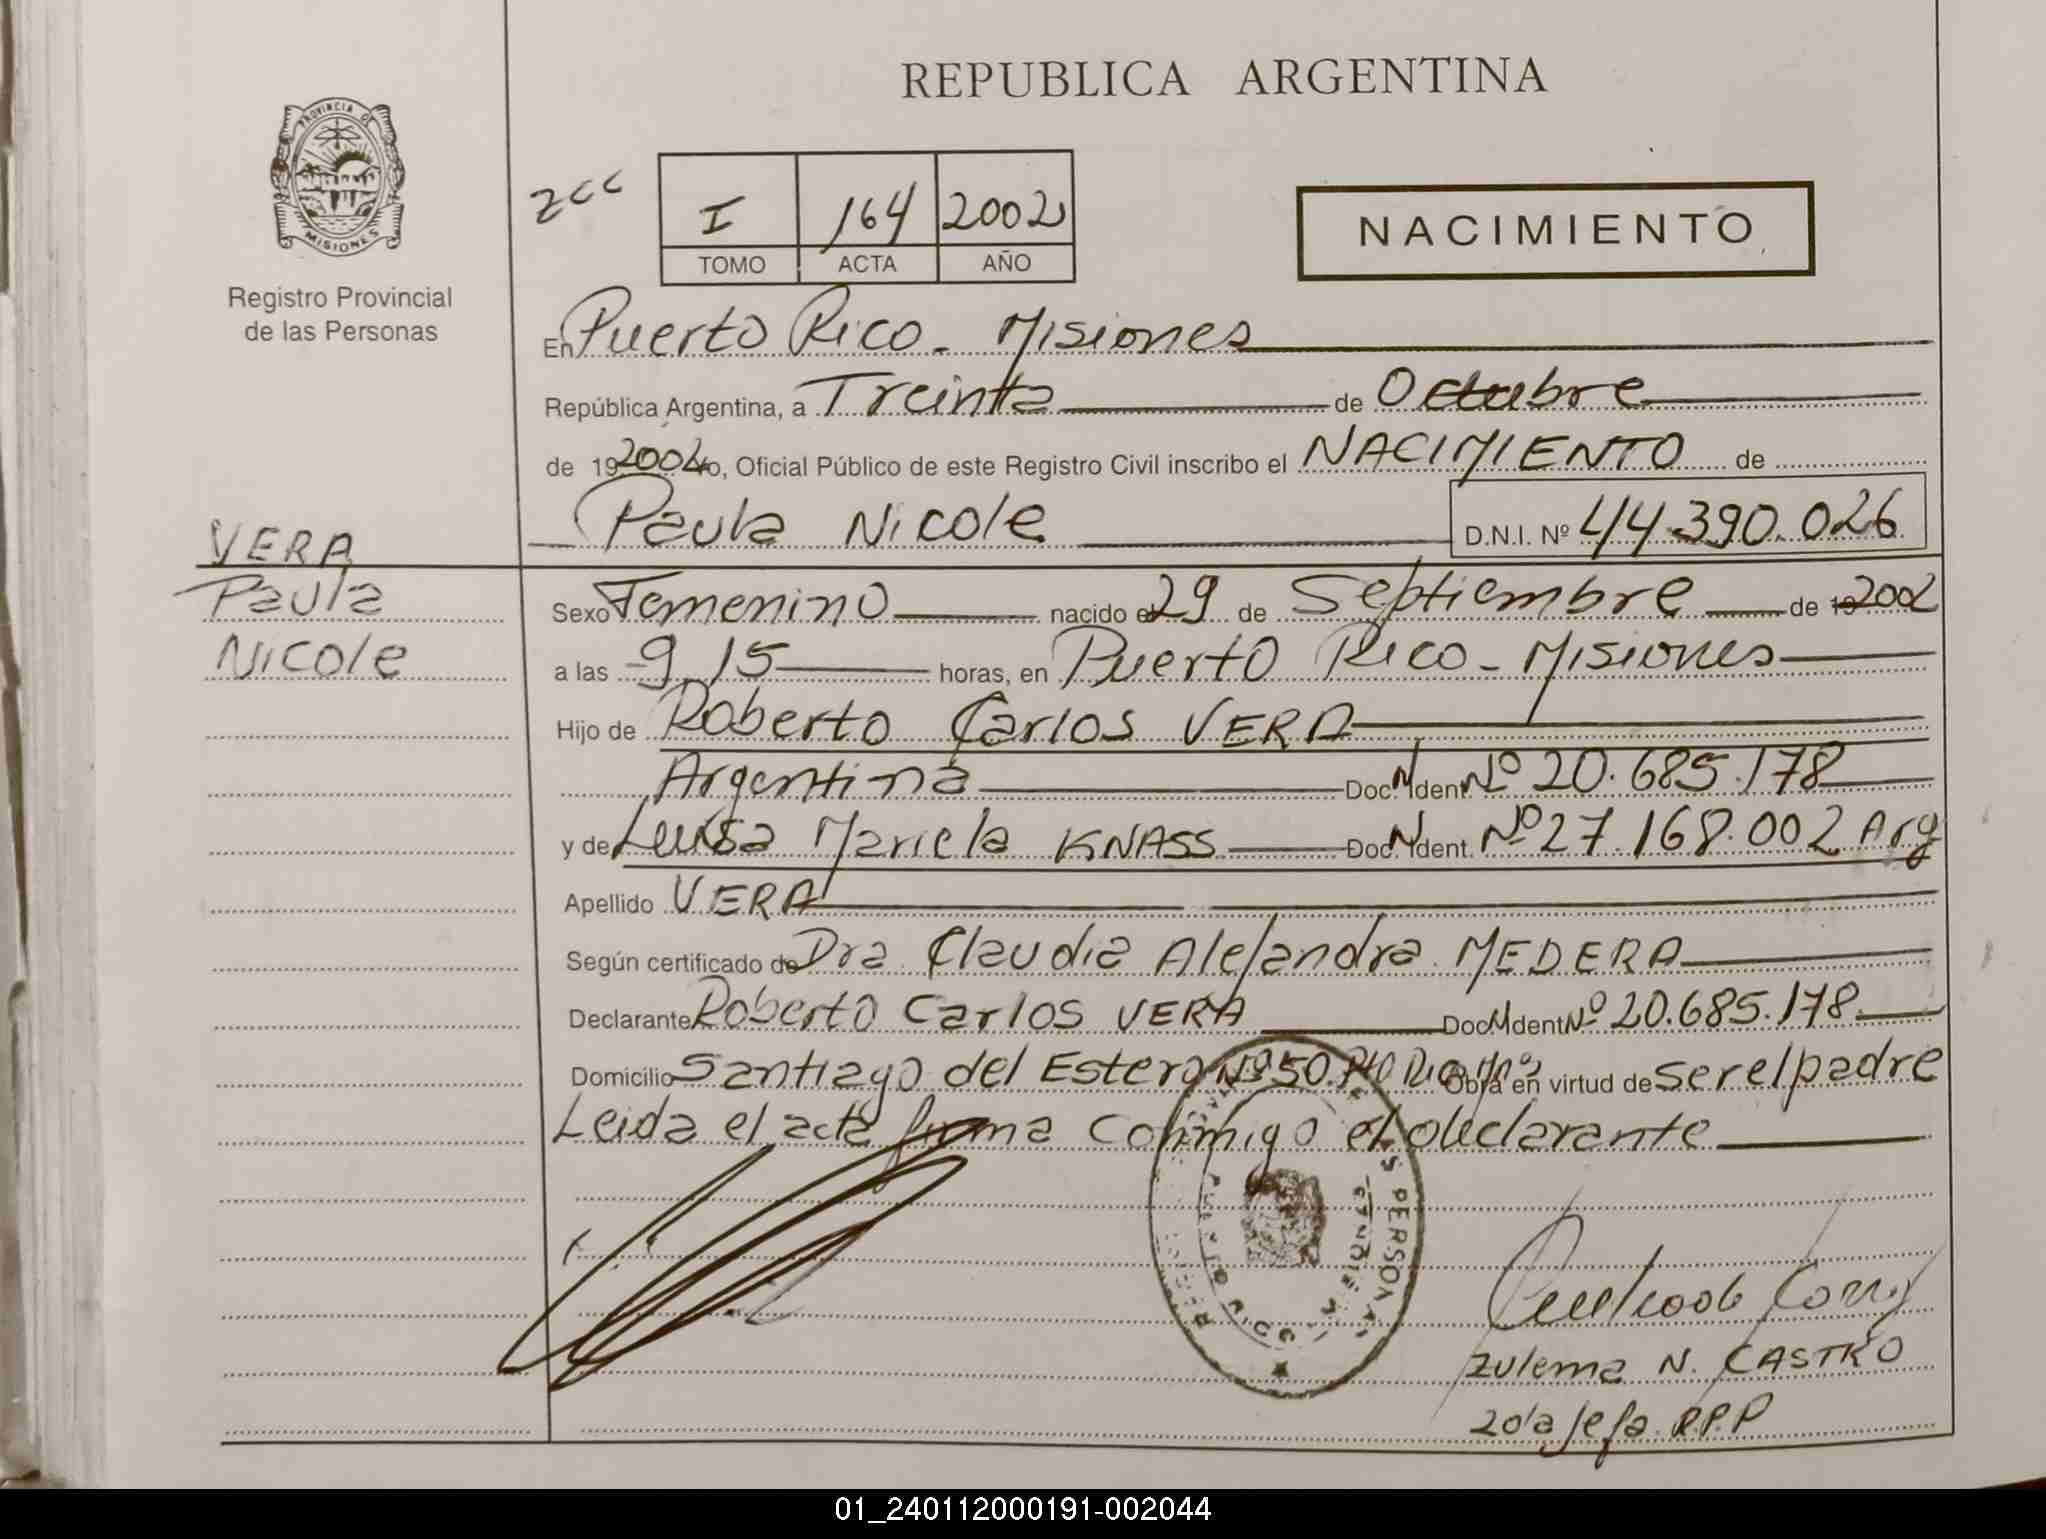 REPUBLICA ARGENTINA
PROVINCIA DE
MISIONES
Registro Provincial
de las Personas
zcc
I 164 2002
TOMO ACTA AÑO
NACIMIENTO
En Puerto Rico - Misiones
República Argentina, a Treinta de Octubre
de 19 2002 yo, Oficial Público de este Registro Civil inscribo el NACIMIENTO de
Paula Nicole D.N.I. Nº 44.390.026
VERA
Paula
Nicole
Sexo Femenino nacido el 29 de Septiembre de 19 2002
a las 9,15 horas, en Puerto Rico - Misiones
Hijo de Roberto Carlos VERA
Argentina Doc. Ident. Nº 20.685.178
y de Luisa Mariela KNASS Doc. Ident. Nº 27.168.002 Arg
Apellido VERA
Según certificado de Dra Claudia Alejandra MEDERA
Declarante Roberto Carlos VERA Doc. Ident. Nº 20.685.178
Domicilio Santiago del Estero Nº 50 Pto Rico Obra en virtud de ser el padre
Leida el acta firma conmigo el declarante
PERSONAS
Zulema N. CASTRO
2da Jefa R.P.P
01_240112000191-002044